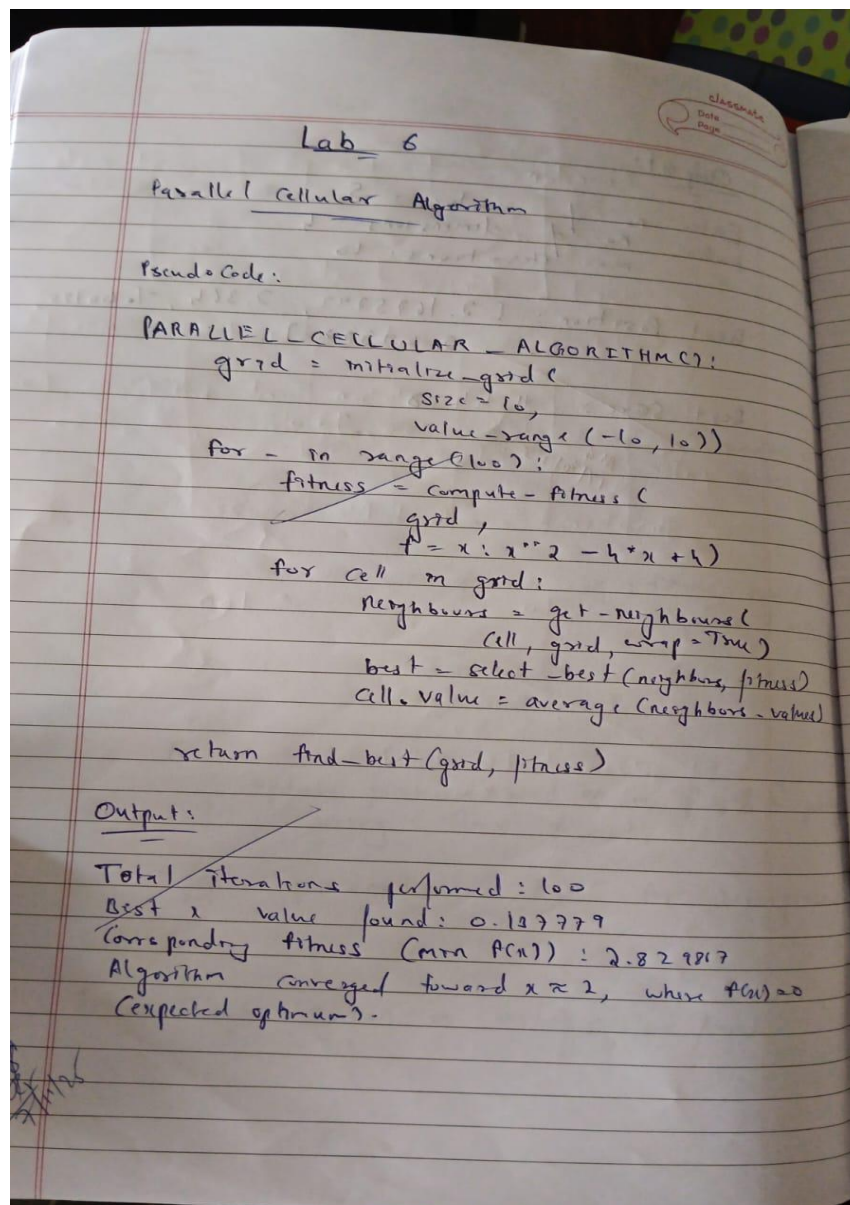 classmate
Date
Page
Lab 6
Parallel Cellular Algorithm
Pseudo Code:
PARALLEL_CELLULAR_ALGORITHM():
grid = initialize_grid(
size = 10,
value-range (-10, 10))
for - in range(100):
fitness = compute-fitness(
grid,
f = x: x**2 - 4*x + 4)
for cell in grid:
neighbours = get-neighbours(
cell, grid, wrap = True)
best = select-best(neighbors, fitness)
cell.value = average(neighbors.values)
return find-best(grid, fitness)
Output:
Total iterations performed: 100
Best x value found:
Corresponding fitness (min f(x)):
Algorithm converged toward x ≈ 2, where f(x)=0
(expected optimum).